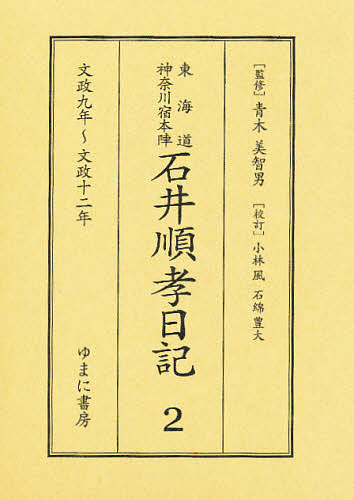 [監修] 青木 美智男 [校訂] 小林 風 石綿 豊大
東海道
神奈川宿本陣
石井順孝日記 2
文政九年〜文政十二年
ゆまに書房